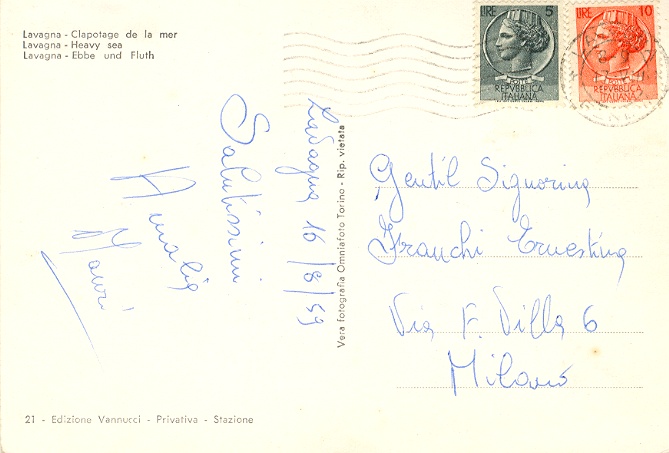 Lavagna - Clapotage de la mer
Lavagna - Heavy sea
Lavagna - Ebbe und Fluth
LIRE 5
POSTE
REPVBBLICA
ITALIANA
LIRE 10
POSTE
REPVBBLICA
ITALIANA
Lavagna 16/8/59
Salutissimi
Amalia
Mauri
Vera fotografia Omniafoto Torino - Rip. vietata
Gentil Signorina
Franchi Ernestina
Via F. Villa 6
Milano
21 - Edizione Vannucci - Privativa - Stazione